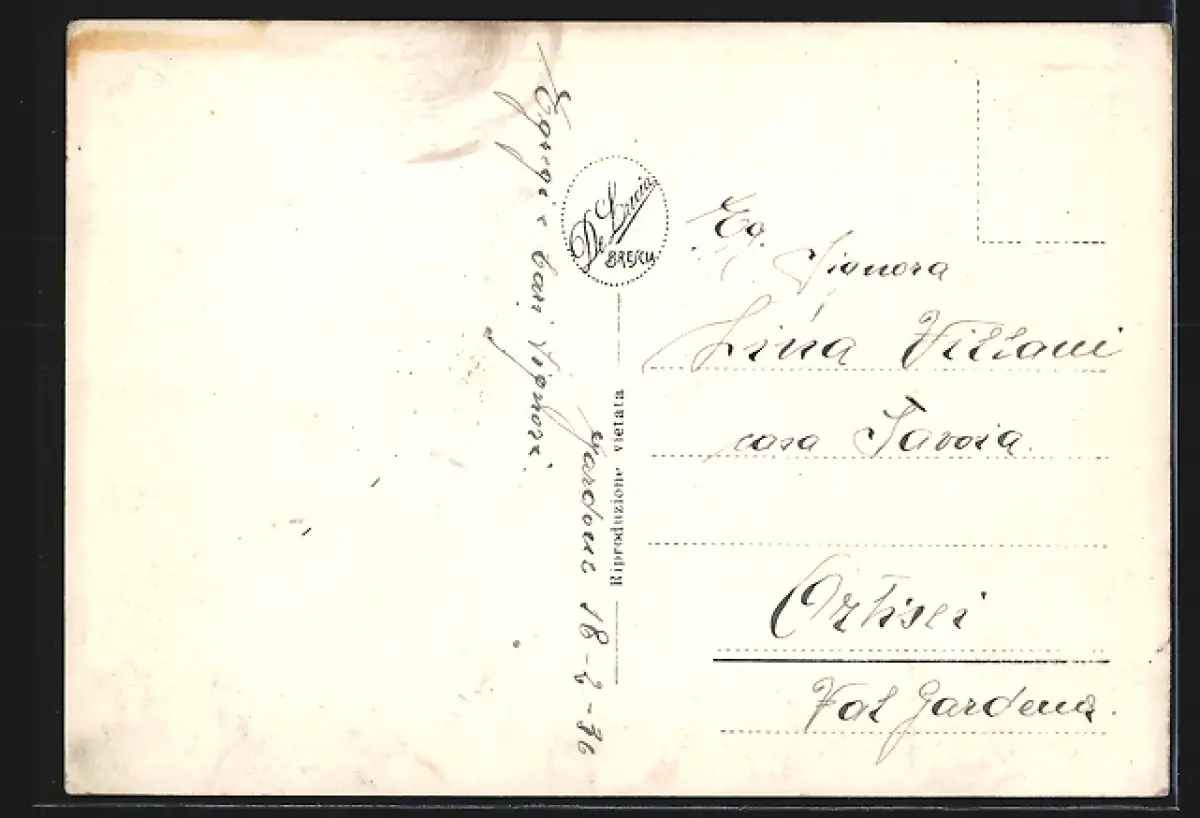 Gardone 18-2-36
Egregi e cari Signori.
De Lucia
BRESCIA
Riproduzione vietata
Eg.
Signora
Lina Villani
casa Savoia.
Ortisei
Val Gardena.